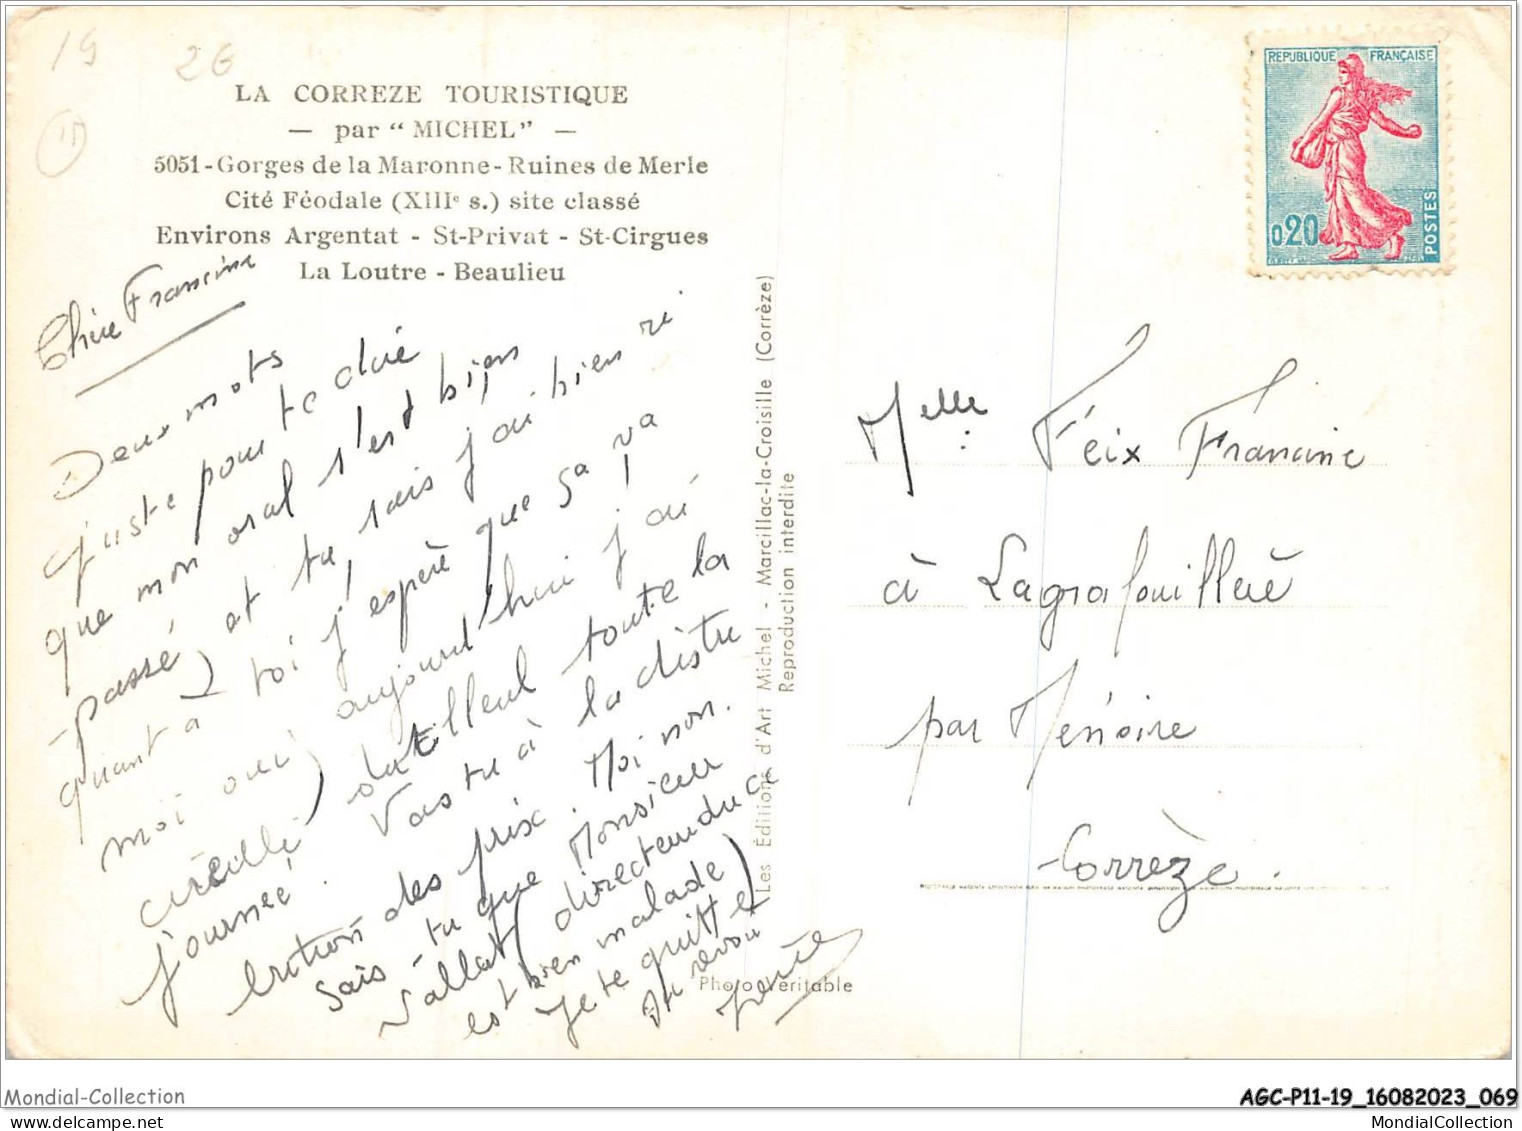 19
26
LA CORREZE TOURISTIQUE
— par “ MICHEL” —
5051 - Gorges de la Maronne - Ruines de Merle
Cité Féodale (XIIIe s.) site classé
Environs Argentat - St-Privat - St-Cirgues
La Loutre - Beaulieu
Chère Francine
Deux mots
juste pour te dire
que mon oral s'est bien
passé, et tu sais j'ai bien ri
quant à toi j'espère que sa va
moi oui) aujourd'hui j'ai
toute la
journée. Vas tu à la distri
bution des prix. Moi non.
Sais-tu que Monsieur
(directeur du C.
est bien malade)
Je te quitte
Au revoir
Les Editions d'Art Michel - Marcillac-la-Croisille (Corrèze)
Reproduction interdite
Photo Véritable
REPUBLIQUE FRANÇAISE
0,20
POSTES
Melle Feix Francine
à Lagrafouillère
par Ménoire
Corrèze.
Mondial-Collection
AGC-P11-19_16082023_069
MondialCollection